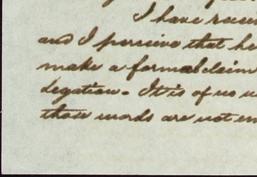 I have recei
and I perceive that he
make a formal claim
legation. It is of no u
those words are not em